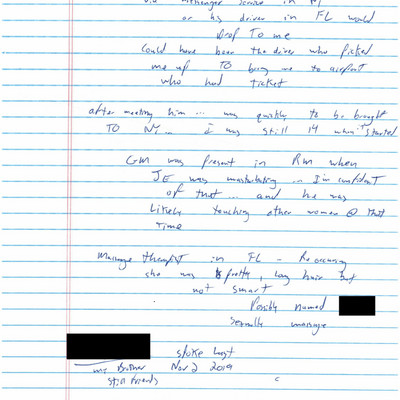 via messenger service in FL
or his driver in FL would
Drop To me
Could have been the driver who picked
me up TO bring me to airport
who had ticket
after meeting him ... was quickly to be brought
TO NY ... I was still 14 when I started
GM was present in RM when
JE was masturbating ... I'm confident
of that ... and he was
Likely touching other women @ that
time
Massage therapist in FL - Reoccuring
she was pretty, long hair but
not smart
Possibly named
sexually massage
spoke last
my Brother Nov 2 2019
still friends